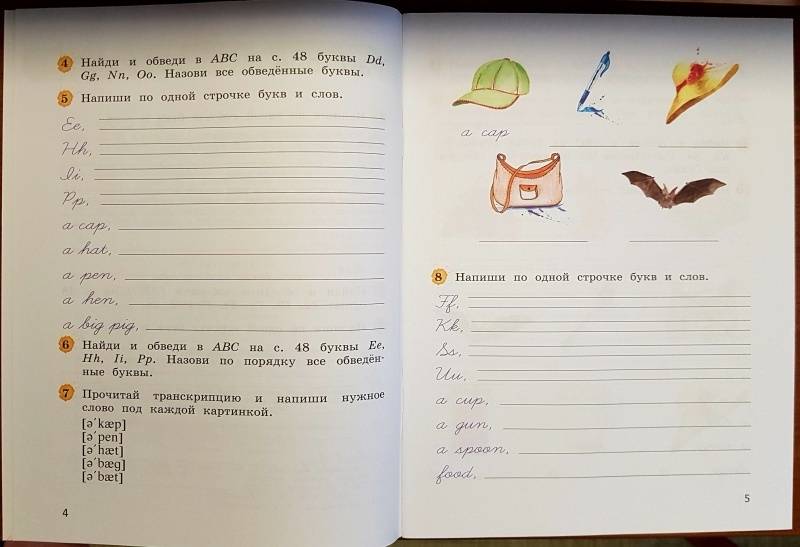 4 Найди и обведи в ABC на с. 48 буквы Dd,
Gg, Nn, Oo. Назови все обведённые буквы.
5 Напиши по одной строчке букв и слов.
Ee,
Hh,
Ii,
Pp,
a cap,
a hat,
a pen,
a hen,
a big pig,
6 Найди и обведи в ABC на с. 48 буквы Ee,
Hh, Ii, Pp. Назови по порядку все обведён-
ные буквы.
7 Прочитай транскрипцию и напиши нужное
слово под каждой картинкой.
[ə'kæp]
[ə'pen]
[ə'hæt]
[ə'bæg]
[ə'bæt]
4
a cap
8 Напиши по одной строчке букв и слов.
Ff,
Kk,
Ss,
Uu,
a cup,
a gun,
a spoon,
food,
5